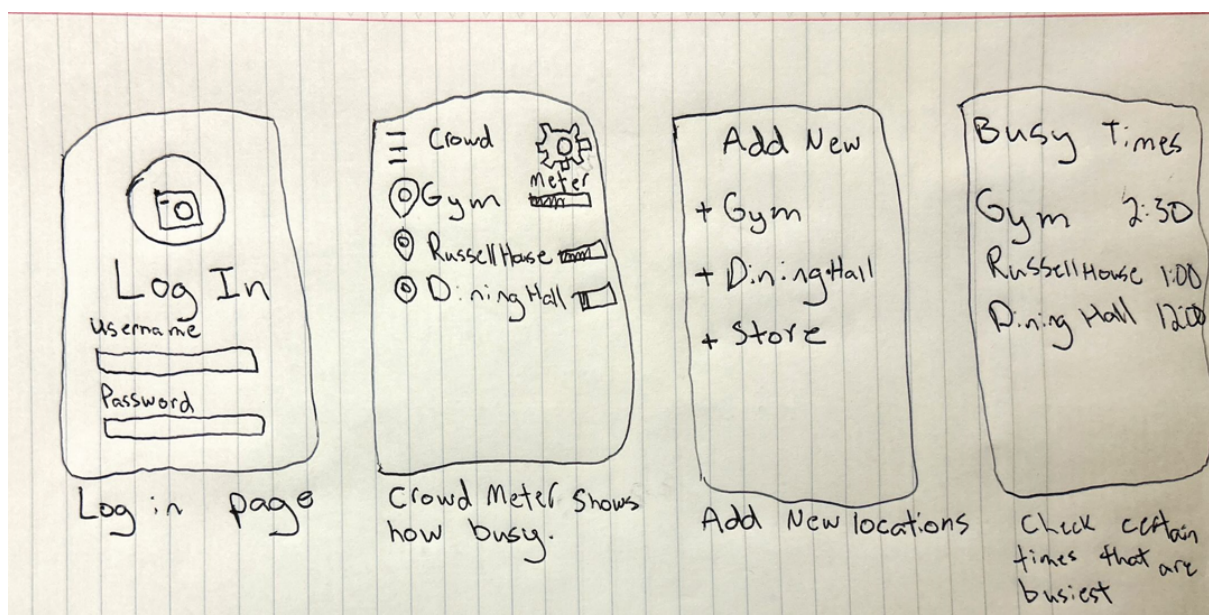 Log In
username
Password
Log in page
Crowd
Meter
Gym
Russell House
Dining Hall
Crowd Meter shows
how busy.
Add New
+ Gym
+ Dining Hall
+ Store
Add New locations
Busy Times
Gym 2:30
Russell House 1:00
Dining Hall 12:00
Check certain
times that are
busiest